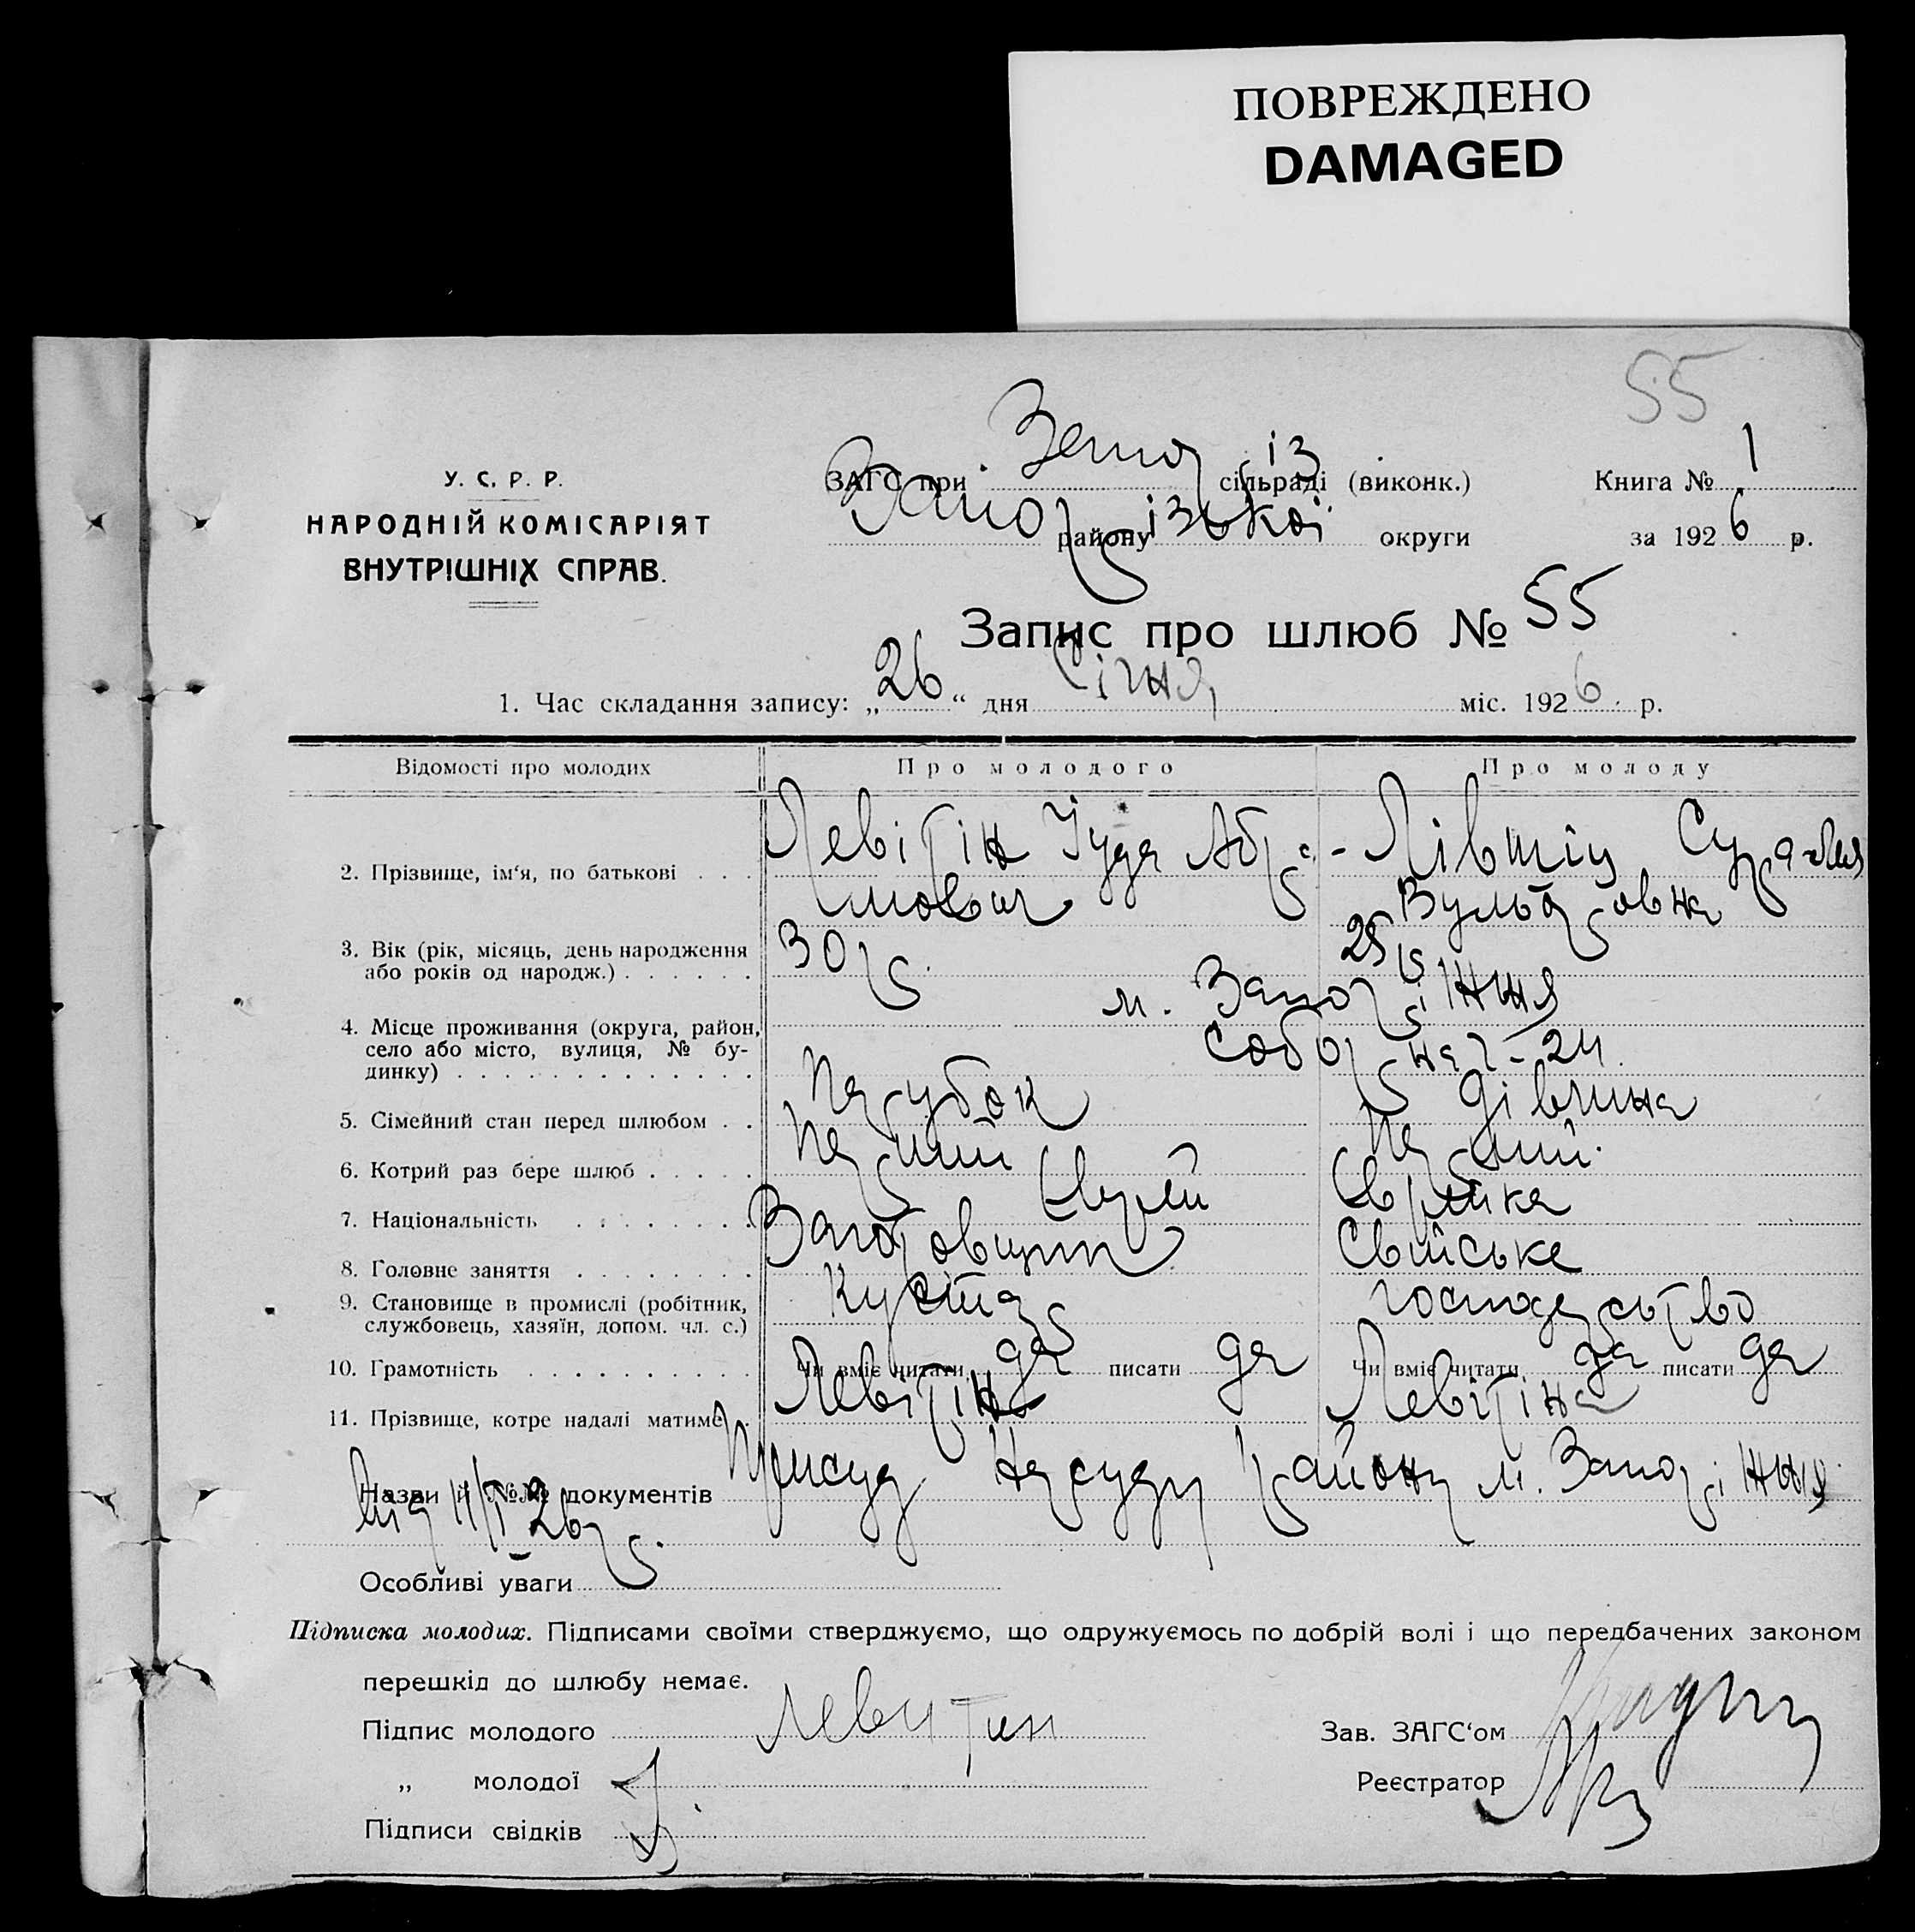 ПОВРЕЖДЕНО
DAMAGED
55
У. С. Р. Р.
НАРОДНІЙ КОМІСАРІЯТ
ВНУТРІШНІХ СПРАВ.
ЗАГС при Запоріз сільраді (виконк.) Книга № 1
Запорізької району округи за 1926 р.
Запис про шлюб № 55
1. Час складання запису: „26“ дня Січня міс. 1926 р.
Відомості про молодих Про молодого Про молоду
2. Прізвище, ім‘я, по батькові . . . Левітін Іуда Абра- Лівшіц
мович Вульфовна
3. Вік (рік, місяць, день народження 30 р. 25 р.
або років од народж.) . . . . . .
м. Запоріжжя
4. Місце проживання (округа, район,
село або місто, вулиця, № бу- Соборна 24
динку) . . . . . . . . . . . . .
5. Сімейний стан перед шлюбом . . Парубок Дівчина
6. Котрий раз бере шлюб . . . . . Перший Перший
7. Національність . . . . . . . Єврей Єврейка
8. Головне заняття . . . . . . . . Заготовщик Свійське
9. Становище в промислі (робітник, Кустар господарство
службовець, хазяїн, допом. чл. с.)
10. Грамотність . . . . . . . . . . Чи вміє читати да писати да Чи вміє читати да писати да
11. Прізвище, котре надалі матиме . Левітін Левітіна
Назви й №№ документів Присуд Нарсуду району м. Запоріжжя
від 11/I 26 р.
Особливі уваги
Підписка молодих. Підписами своїми стверджуємо, що одружуємось по добрій волі і що передбачених законом
перешкід до шлюбу немає.
Підпис молодого Левитин Зав. ЗАГС‘ом
„ молодої Реєстратор
Підписи свідків